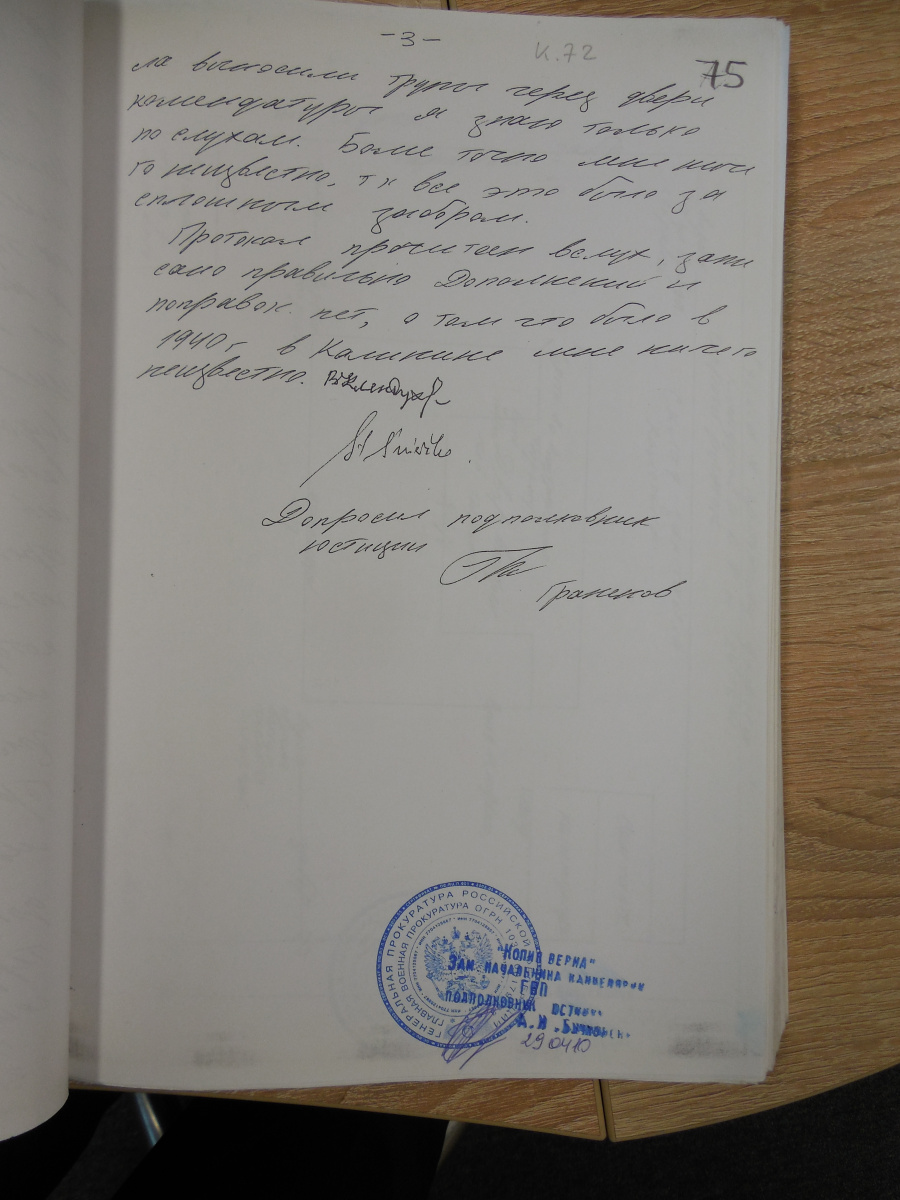 -3-
К.72
75
ла выносили трупы через двери
комендатуры я знаю только
по слухам. Более точно мне ниче
го неизвестно, т к все это было за
сплошным забором.
Протокол прочитан вслух, запи
сано правильно Дополнений и
поправок нет, о том что было в
1940 г в Калинине мне ничего
неизвестно.
Допросил подполковник
юстиции
ГЕНЕРАЛЬНАЯ ПРОКУРАТУРА РОССИЙСКОЙ
ГЛАВНАЯ ВОЕННАЯ ПРОКУРАТУРА ОГРН
"КОПИЯ ВЕРНА"
ЗАМ. НАЧАЛЬНИКА КАНЦЕЛЯРИИ
ГВП
ПОДПОЛКОВНИК ЮСТИЦИИ
А.И.
290410